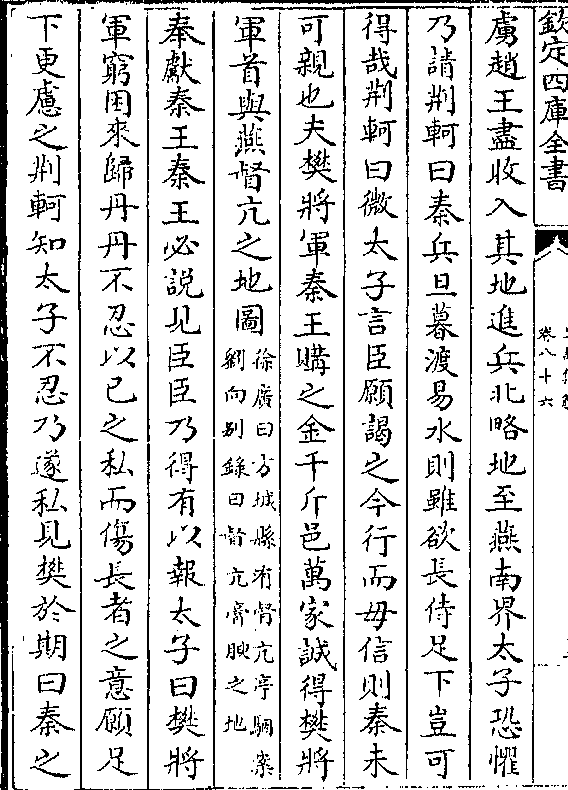 欽定四庫全書
卷八十六
虜趙王盡收入其地進兵北略地至燕南界太子恐懼
乃請荆軻曰秦兵旦暮渡易水則雖欲長侍足下豈可
得哉荆軻曰微太子言臣願謁之今行而毋信則秦未
可親也夫樊將軍秦王購之金千斤邑萬家誠得樊將
軍首與燕督亢之地圖
徐廣曰方城縣有督亢亭駰案
劉向别錄曰督亢膏腴之地
奉獻秦王秦王必說見臣臣乃得有以報太子曰樊將
軍窮困來歸丹丹不忍以已之私而傷長者之意願足
下更慮之荆軻知太子不忍乃遂私見樊於期曰秦之